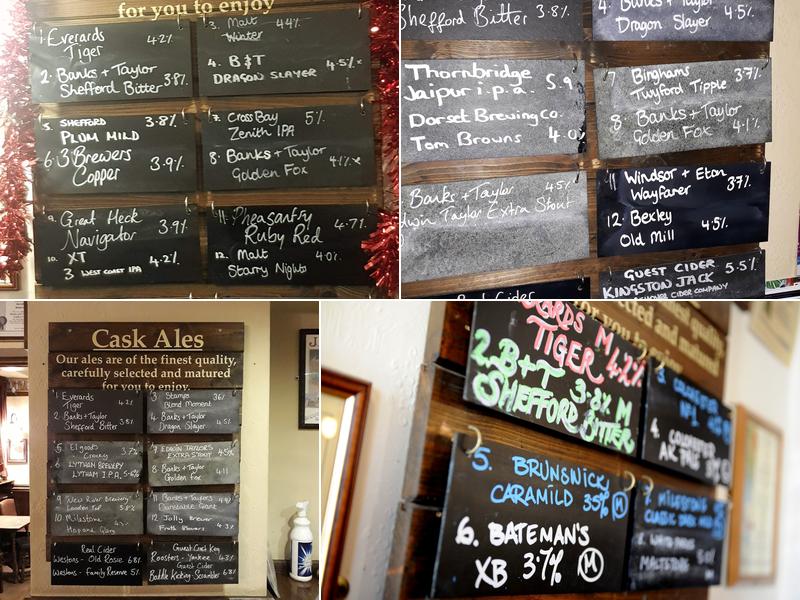 for you to enjoy
1. Everards
Tiger 4.2%
2. Banks + Taylor
Shefford Bitter 3.8%
3. Malt 4.4%
Winter
4. B & T 4.5%
DRAGON SLAYER
5. SHEFFORD 3.8%
PLUM MILD
6. 3 Brewers
Copper 3.9%
7. CrossBay 5%
Zenith IPA
8. Banks + Taylor
Golden Fox 4.1%
9. Great Heck 3.9%
Navigator
10. XT 4.2%
3 WEST COAST IPA
11. Pheasantry 4.7%
Ruby Red
12. Malt 4.0%
Starry Nights
Shefford Bitter 3.8%
4. Banks + Taylor
Dragon Slayer 4.5%
Thornbridge
Jaipur i.p.a. 5.9
Dorset Brewing Co.
Tom Browns 4.0%
7 Binghams 3.7%
Twyford Tipple
8. Banks + Taylor
Golden Fox 4.1%
Banks + Taylor 4.5%
Edwin Taylor Extra Stout
11 Windsor + Eton
Wayfarer 3.7%
12. Bexley
Old Mill 4.5%
GUEST CIDER 5.5%
KINGSTON JACK
CIDER COMPANY
Cask Ales
Our ales are of the finest quality,
carefully selected and matured
for you to enjoy.
1 Everards
Tiger 4.2%
2 Banks + Taylor
Shefford Bitter 3.8%
3 Stamps 3.6%
Blond Moment
4. Banks + Taylor
Dragon Slayer 4.5%
5 Elgoods 3.7%
6 LYTHAM BREWERY
LYTHAM I.P.A. 5.6%
7 EDWIN TAYLORS
EXTRA STOUT 4.5%
8 Banks + Taylor
Golden Fox 4.1
9
10 Milestone
Hop and Glory
11 Banks + Taylors
Dunstable Giant
12 Jolly Brewer 4.3%
Real Cider
Westons - Old Rosie 6.8%
Westons - Family Reserve 5%
Guest Craft Keg
Roosters - Yankee 4.3%
Guest Cider
6.8%
TIGER 4.2%
2. B+T 3.8% M
SHEFFORD BITTER
5. BRUNSWICK
CARAMILD 3.5% M
6. BATEMAN'S
XB 3.7% M
4.